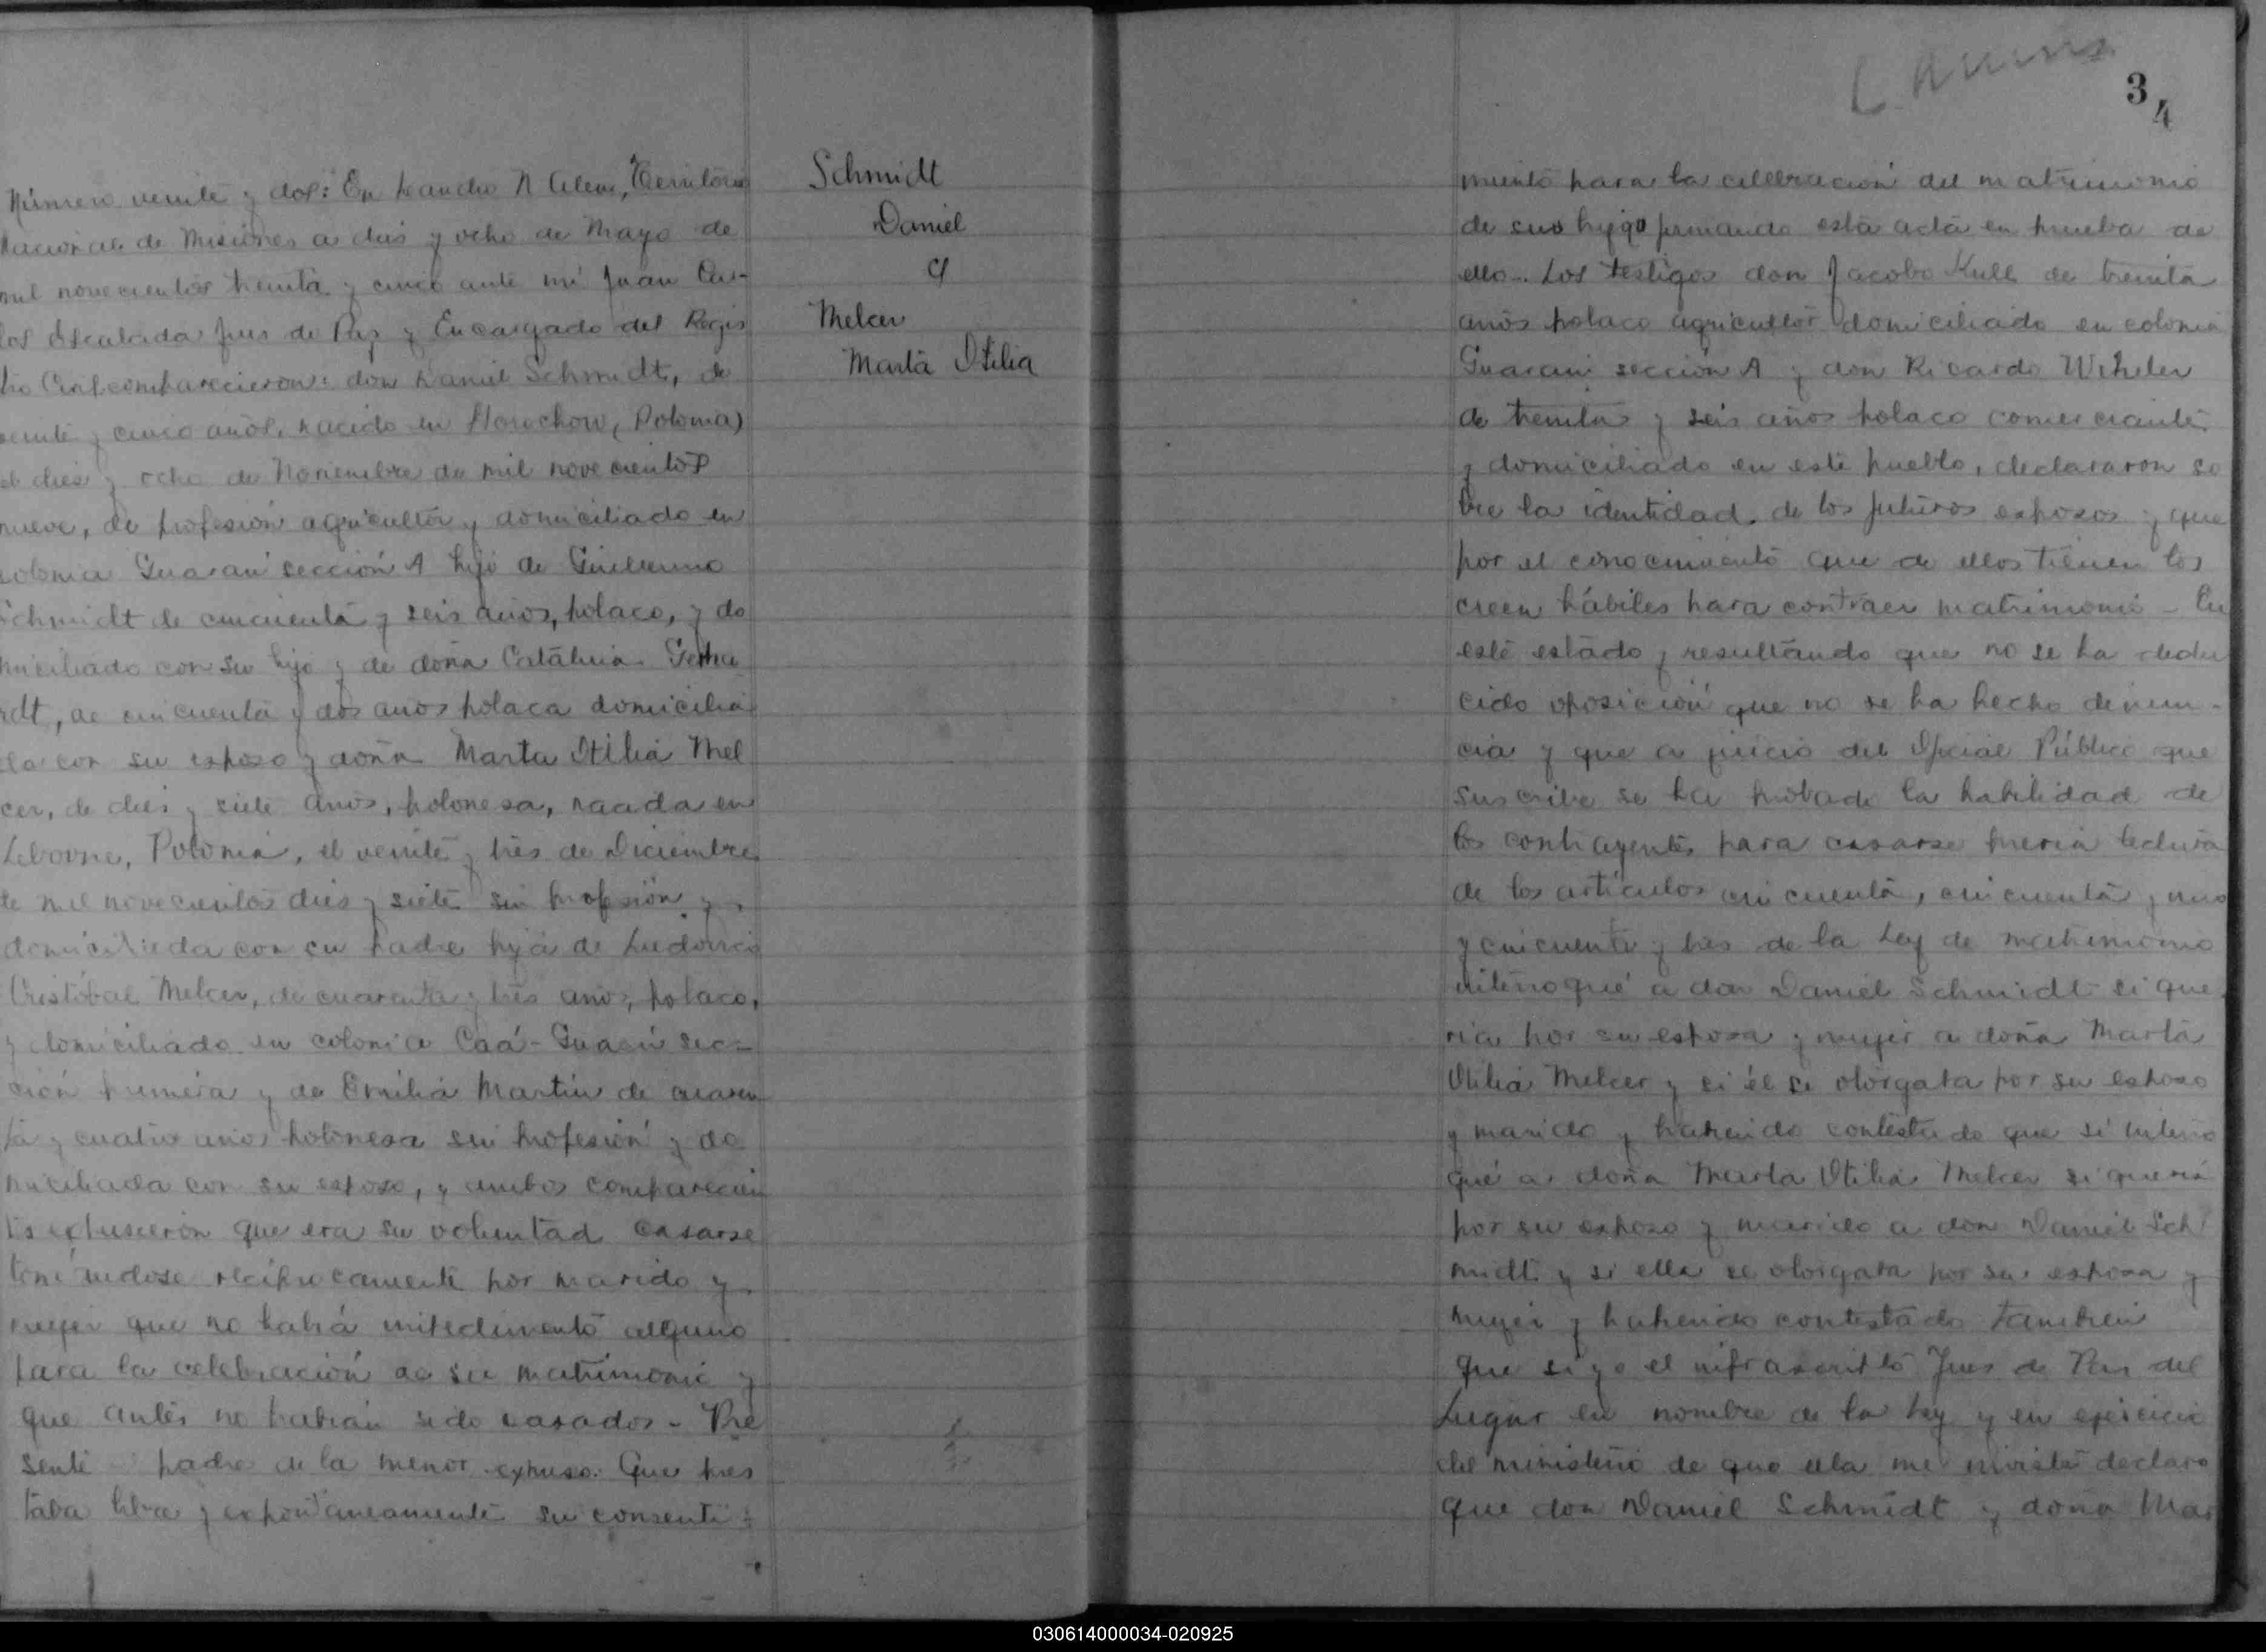 Número veinte y dos: En Leandro N Alem, Territorio
Nacional de Misiones a dies y ocho de Mayo de
mil novecientos treinta y cinco ante mi Juan Car-
los Escalada Jues de Pas y Encargado del Regis
tro Civil comparecieron: don Daniel Schmidt, de
veinte y cinco años, nacido en Horochow, (Polonia)
el dies y ocho de Noviembre de mil novecientos
nueve, de profesión agricultor y domiciliado en
colonia Guaraní sección A hijo de Guillermo
Schmidt de cincuenta y seis años, polaco, y do
miciliado con su hijo y de doña Catalina Gerha
rdt, de cincuenta y dos años polaca domicilia
da con su esposo y doña Marta Otilia Mel
cer, de dies y siete años, polonesa, nacida en
Polonia, el veinte y tres de Diciembre
de mil novecientos dies y siete sin profesión y
domiciliada con su padre hija de Ludovico
Cristóbal Melcer, de cuarenta y tres años, polaco,
y domiciliado en colonia Caá-Guazú sec-
ción primera y de Emilia Martin de cuaren
ta y cuatro años polonesa sin profesión y do
miciliada con su esposo, y ambos comparecien
tes expusieron que era su voluntad casarse
teniéndose recíprocamente por marido y
mujer que no había impedimento alguno
para la celebración de su matrimonio y
que antes no habían sido casados - Pre
sente padre de la menor expuso: Que pres
taba libre y expontaneamente su consenti-
Schmidt
Daniel
c/
Melcer
Marta Otilia
3
4
miento para la celebración del matrimonio
de suo hijo firmando esta acta en prueba de
ello.- Los testigos don Jacobo Kull de treinta
años polaco agricultor domiciliado en colonia
Guaraní sección A y don Ricardo
de treinta y seis años polaco comerciante
y domiciliado en este pueblo, declararon so
bre la identidad de los futuros esposos y que
por el conocimiento que de ellos tienen los
creen hábiles para contraer matrimonio - En
este estado y resultando que no se ha dedu
cido oposición que no se ha hecho denun-
cia y que a juicio del Oficial Público que
suscribe se ha probado la habilidad de
los contrayentes para casarse previa lectura
de los artículos cincuenta, cincuenta y uno
y cincuenta y tres de la Ley de matrimonio
interroqué a don Daniel Schmidt si que
ría por su esposa y mujer a doña Marta
Otilia Melcer y si él se otorgaba por su esposo
y marido y habiendo contestado que si interro
qué a doña Marta Otilia Melcer si quería
por su esposo y marido a don Daniel Sch
midt y si ella se otorgaba por su esposa y
mujer y habiendo contestado tambien
que si yo el infrascritto Jues de Pas del
Lugar en nombre de la Ley y en ejercicio
del ministerio de que ella me inviste declaro
que don Daniel Schmidt y doña Mar
030614000034-020925